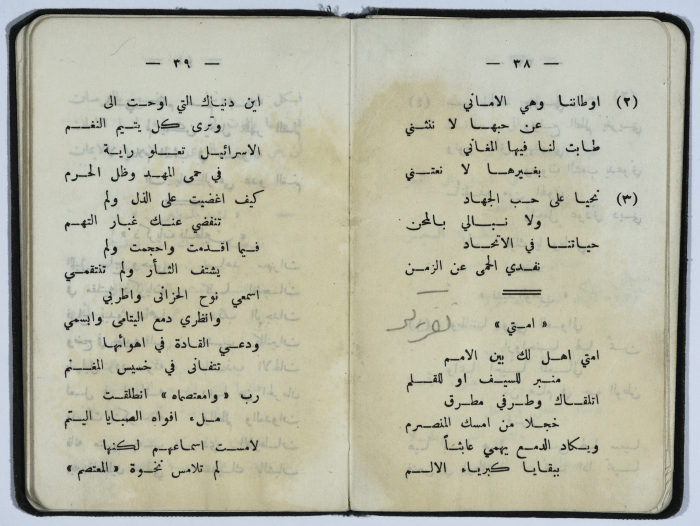 — ٣٨ —
(٢) اوطاننا وهي الاماني
عن حبها لا ننثني
طابت لنا فيها المغاني
بغيرها لا نعتني
(٣) نحيا على حب الجهاد
ولا نبالي بالمحن
حياتنا في الاتحاد
نفدي الحمى عن الزمن
« امتي »
امتي اهل لك بين الامم
منبر للسيف او للقلم
اتلقاك وطرفي مطرق
خجلا من امسك المنصرم
ويكاد الدمع يهمي عابثاً
ببقايا كبرياء الالم
— ٣٩ —
اين دنياك التي اوحت الى
وتري كل يتيم النغم
الاسرائيل تعلو راية
في حمى المهد وظل الحرم
كيف اغضيت على الذل ولم
تنفضي عنك غبار التهم
فيما اقدمت واحجمت ولم
يشتف الثأر ولم تنتقمي
اسمعي نوح الحزانى واطربي
وانظري دمع اليتامى وابسمي
ودعي القادة في اهوائها
تتفانى في خسيس المغنم
رب «وامعتصماه» انطلقت
ملء افواه الصبايا اليتم
لامست اسماعهم لكنها
لم تلامس نخوة «المعتصم»